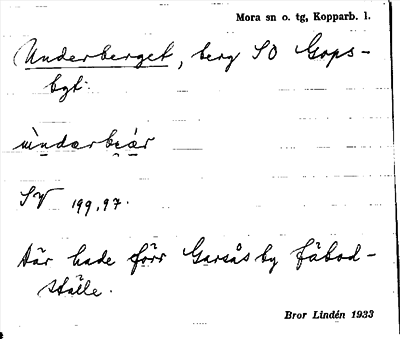 Mora sn o. tg, Kopparb. l.
Underberget, berg SO Gops-
bgt.
ùndərbɛ̀r
SV 199,97.
Där hade förr Garsås by fäbod-
ställe.
Bror Lindén 1933